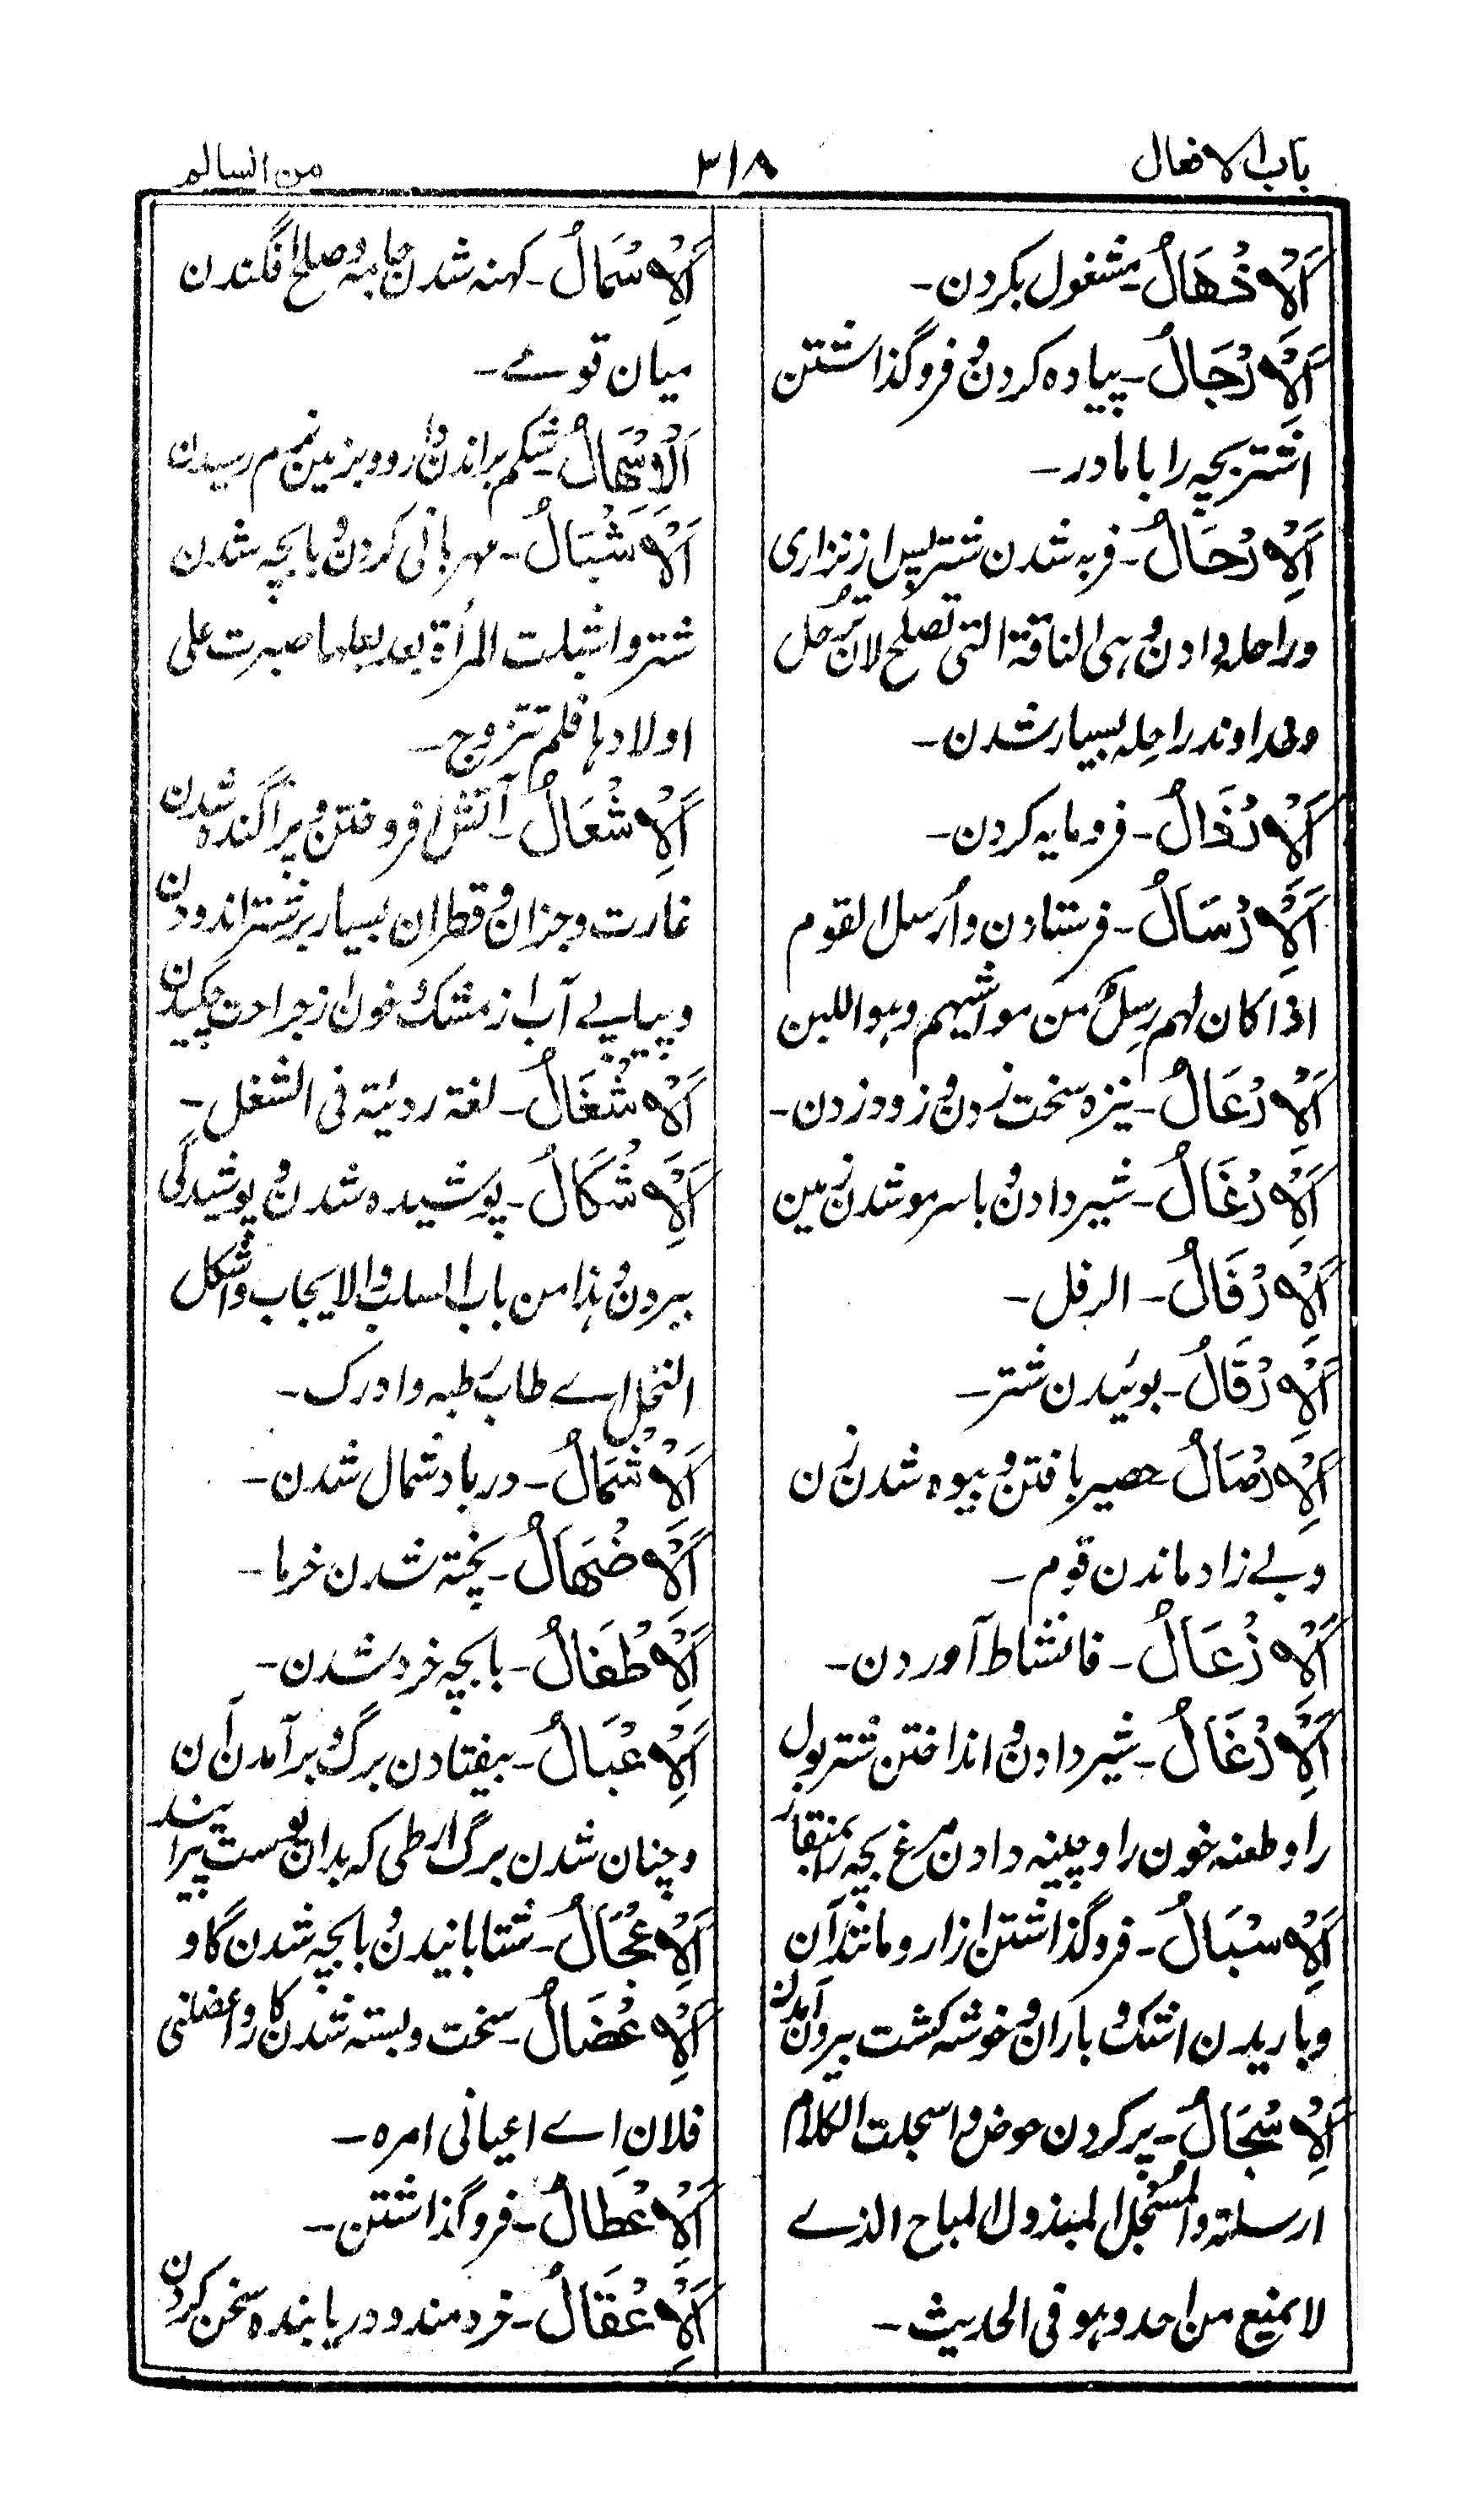 باب الافعال
۳۱۸
من السالم
اَلْاِذْهَالُ۔ مشغول بکردن۔
اَلْاِرْجَالُ۔ پیاده کردن و فروگذاشتن
اشتر بچہ را با مادر۔
اَلْاِرْحَالُ۔ فربہ شدن شتر پس از نزاری
و راحلہ دادن وہی الناقۃ التی تصلح لان تُرحل
و خداوند راحِلہ بسیار شدن۔
اَلْاِرْذَالُ۔ فرومایہ کردن۔
اَلْاِرْسَالُ۔ فرستادن و اَرسل القوم
اذا کان لہم رِسلٌ من مواشیہم وہو اللبن
اَلْاِرْعَالُ۔ نیزه سخت زدن و زود زدن۔
اَلْاِرْغَالُ۔ شیر دادن و باسرمو شدن زمین
اَلْاِرْفَالُ۔ الرفل۔
اَلْاِرْقَالُ۔ بوئیدن شتر۔
اَلْاِرْمَالُ حصیر بافتن و بیوه شدن زن
و بے زاد ماندن قوم۔
اَلْاِزْعَالُ۔ فانشاط آوردن۔
اَلْاِزْغَالُ۔ شیر دادن و انداختن شتر بول
را و طعنہ خون را و چینہ دادن مرغ بچہ را بمنقار
اَلْاِسْبَالُ۔ فروگذاشتن ازار و مانند آن
و باریدن اشک و باران و خوشہ کشت بیرون آمدن
اَلْاِسْجَالُ۔ پر کردن حوض و اسجلت الکلام
ارسلتہ والمُسْجَل المبذول المباح الذے
لا یمنع من احد وہو فی الحدیث۔
اَلْاِسْمَالُ۔ کہنہ شدن جامہ و صلح افگندن
میان قومے۔
اَلْاِسْهَالُ۔ شکم براندن دارو و بزمین نرم رسیدن
اَلْاِشْبَالُ۔ مہربانی کردن و بابچہ شدن
شتر و اشبلت المرأۃ بعد بعلہا صبرت علی
اولادہا فلم تتزوج۔
اَلْاِشْعَالُ۔ آتش افروختن و پراگنده شدن
غارت و جزان و قطران بسیار بر شتر اندودن
و پیاپے آب از مشک و خون از جراحت چکیدن
اَلْاِشْغَالُ۔ لغۃ ردیئۃ فی الشغل۔
اَلْاِشْكَالُ۔ پوشیده شدن و پوشیدگی
ببردن و ہذا من باب السلب والایجاب و اشکل
النخل اے طاب رطبہ و ادرک۔
اَلْاِشْمَالُ۔ در باد شمال شدن۔
اَلْاِضْهَالُ۔ پختہ شدن خرما۔
اَلْاِطْفَالُ۔ بابچہ خرد شدن۔
اَلْاِعْبَالُ۔ بیفتادن برگ و برآمدن آن
و چنان شدن برگ ارطی کہ بدان پوست پیرایند
اَلْاِعْجَالُ۔ شتابانیدن و بابچہ شدن گاو
اَلْاِعْضَالُ۔ سخت و بستہ شدن کار و اعضلنی
فلان اے اعیانی امره۔
اَلْاِعْطَالُ۔ فروگذاشتن۔
اَلْاِعْقَالُ۔ خردمند و دریابنده سخن کردن